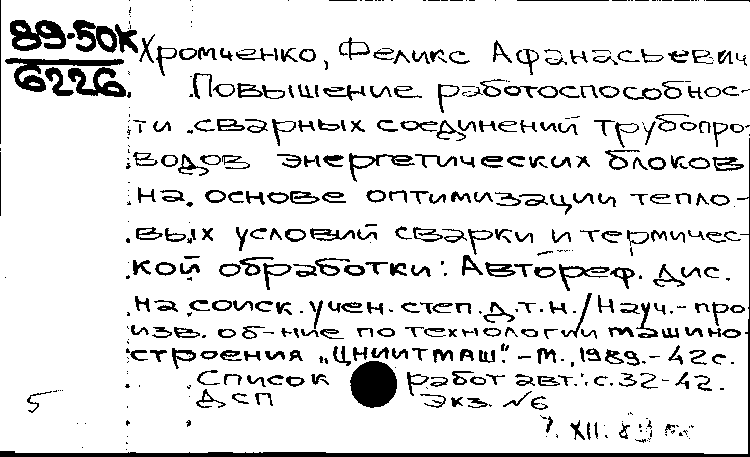 89-50к
6226.
Хромченко, Феликс Афанасьевич
Повышение работоспособнос-
ти сварных соединений трубопро-
водов энергетических блоков
на основе оптимизации тепло-
вых условий сварки и термичес-
кой обработки: Автореф. дис.
на соиск. учен. степ. д.т.н./Науч.-про
изв. об-ние по технологии машино-
строения „ЦНИИТМАШ". - М., 1989. - 42 с.
Список работ авт.: с. 32-42.
ДСП Экз. №6
5
7. XII. 89